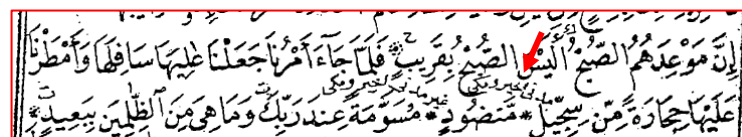 إِنَّ مَوْعِدَهُمُ الصُّبْحُ أَلَيْسَ الصُّبْحُ بِقَرِيبٍ فَلَمَّا جَاءَ أَمْرُنَا جَعَلْنَا عَلِيَهَا سَافِلَهَا وَأَمْطَرْنَا
عَلَيْهَا حِجَارَةً مِّن سِجِّيلٍ مَّنضُودٍ مُّسَوَّمَةً عِندَ رَبِّكَ وَمَا هِىَ مِنَ الظَّٰلِمِينَ بِبَعِيدٍ